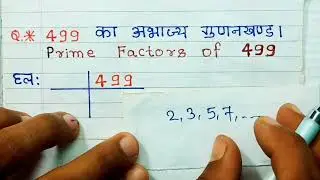 Q.* 499 का अभाज्य गुणनखण्ड।
Prime Factors of 499
हल:
499
2, 3, 5, 7, .....